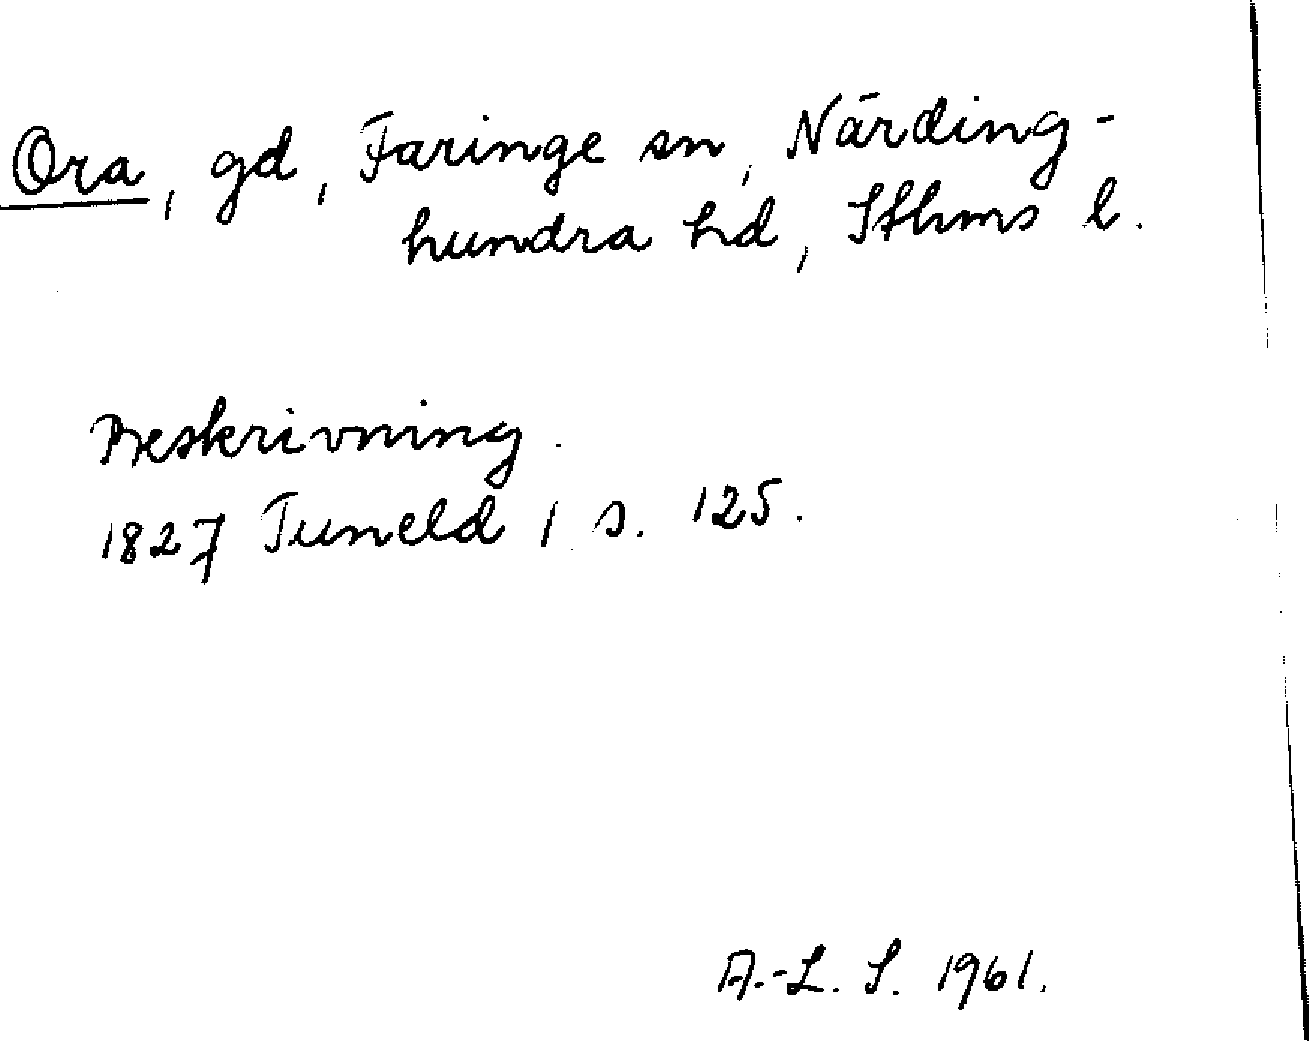 Ora, gd, Faringe sn, Närding-
hundra hd, Sthms l.
Beskrivning.
1827 Tuneld 1 s. 125.
A.-L. S. 1961.